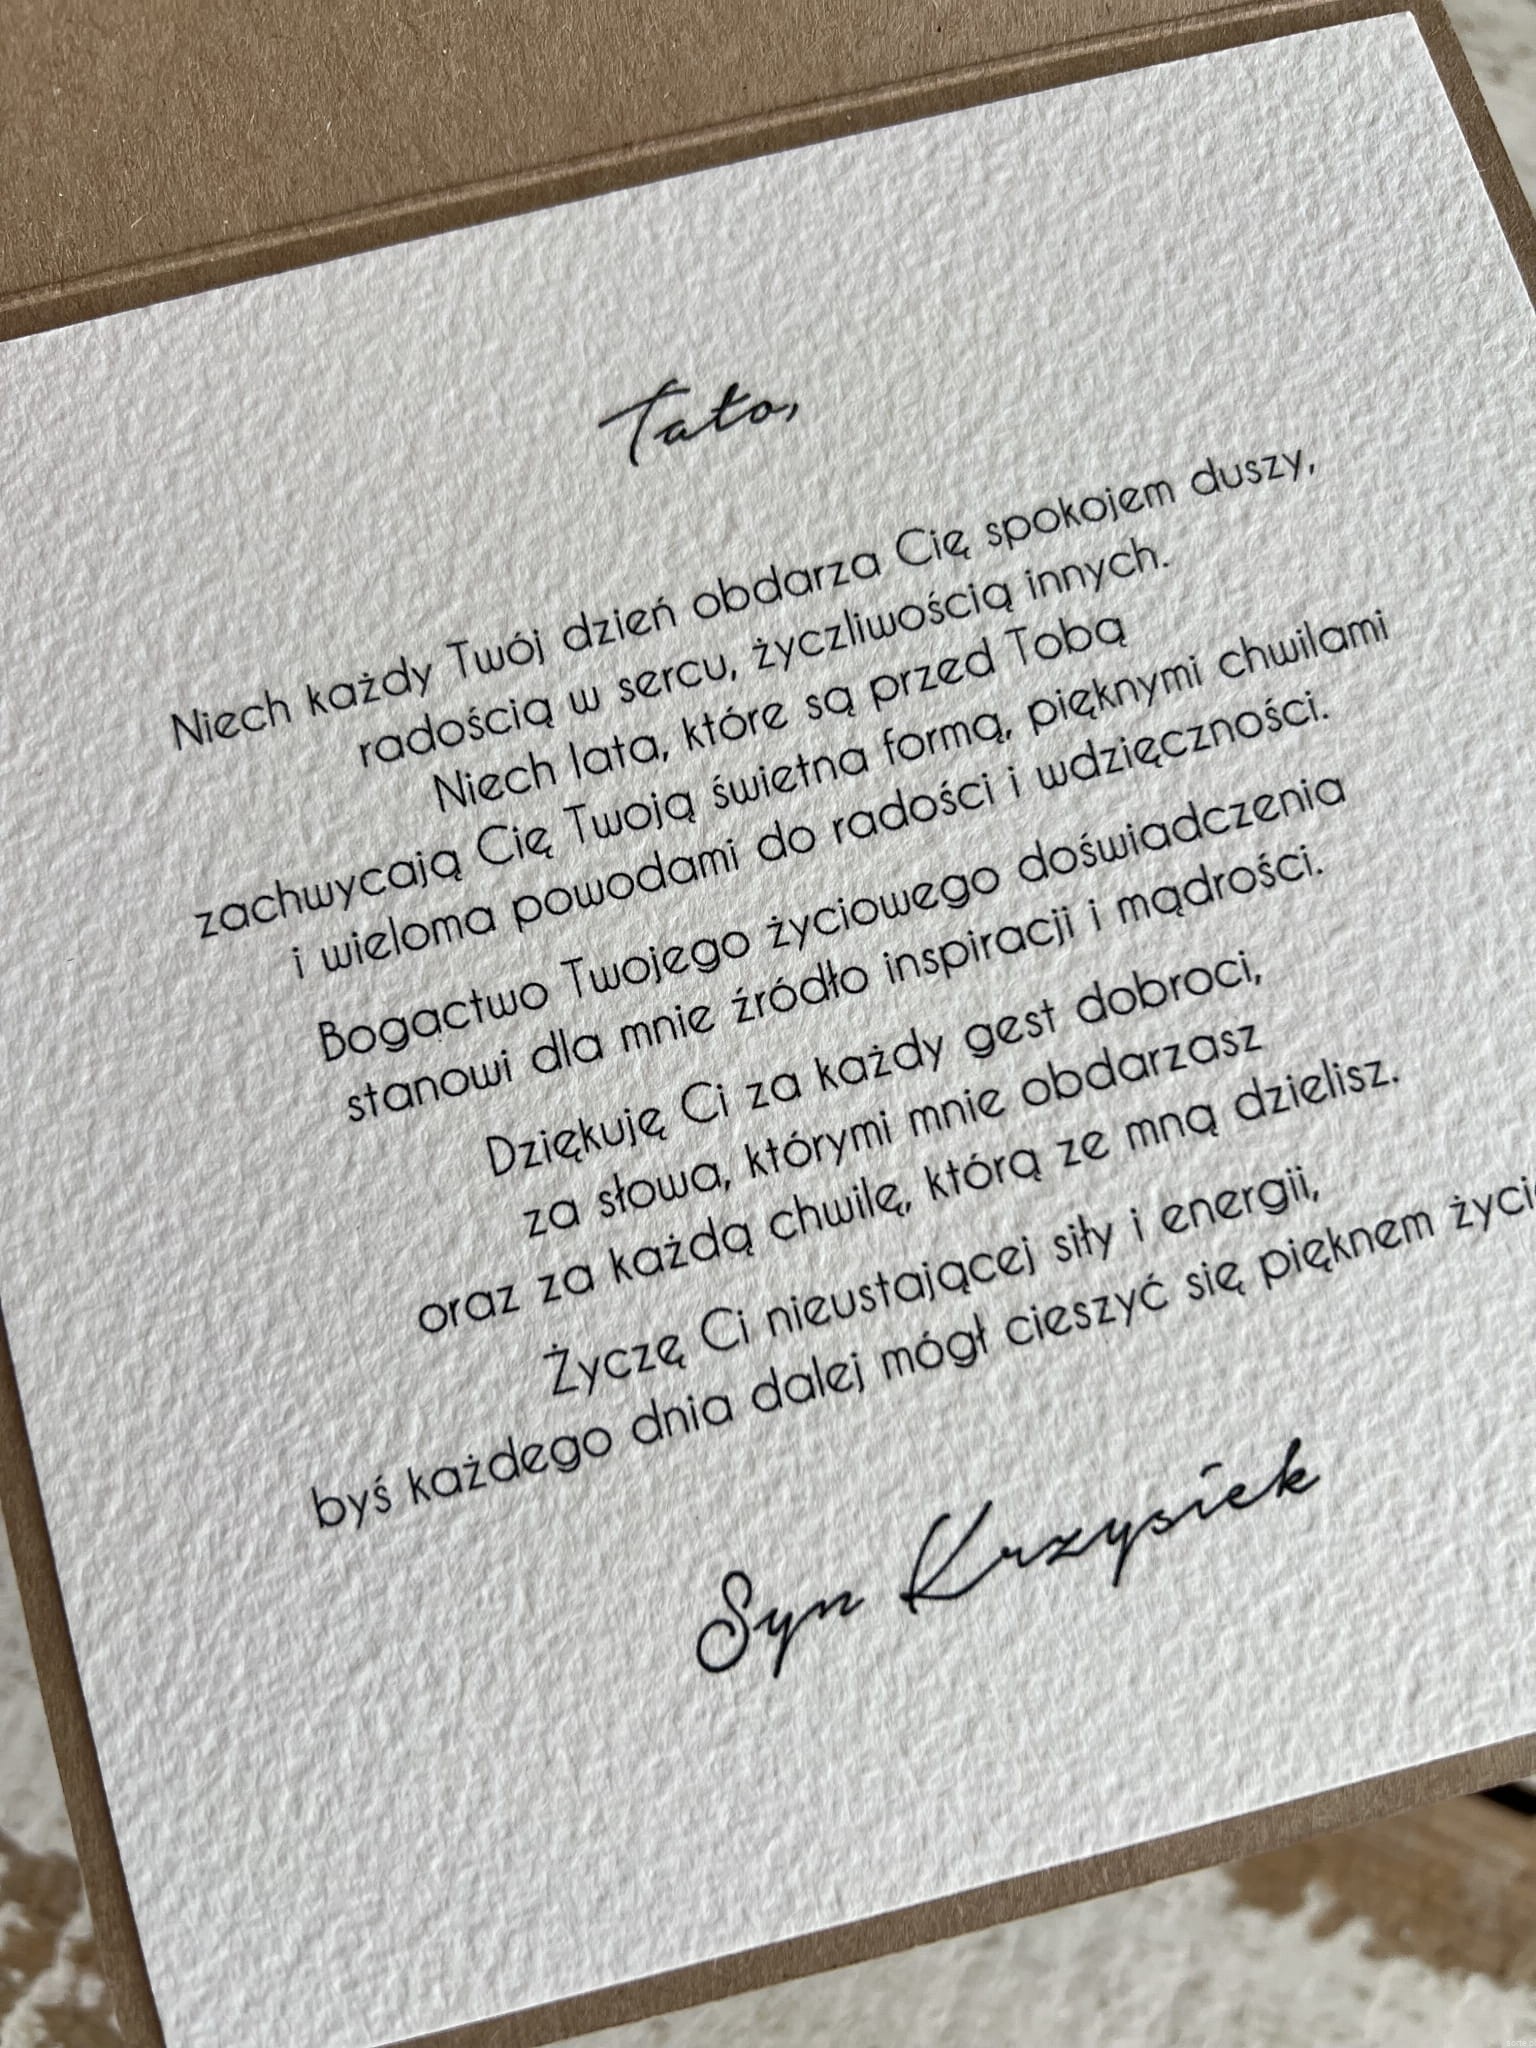 Tato,
Niech każdy Twój dzień obdarza Cię spokojem duszy,
radością w sercu, życzliwością innych.
Niech lata, które są przed Tobą
zachwycają Cię Twoją świetna formą, pięknymi chwilami
i wieloma powodami do radości i wdzięczności.
Bogactwo Twojego życiowego doświadczenia
stanowi dla mnie źródło inspiracji i mądrości.
Dziękuję Ci za każdy gest dobroci,
za słowa, którymi mnie obdarzasz
oraz za każdą chwilę, którą ze mną dzielisz.
Życzę Ci nieustającej siły i energii,
byś każdego dnia dalej mógł cieszyć się pięknem
Syn Krzysiek